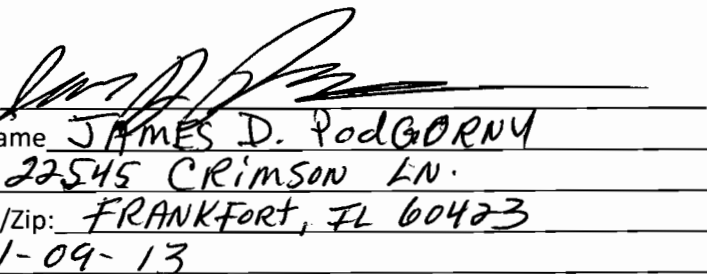 ame JAMES D. PodGORNY
22545 CRimSON LN.
/Zip: FRANKFORt, IL 60423
1-09-13